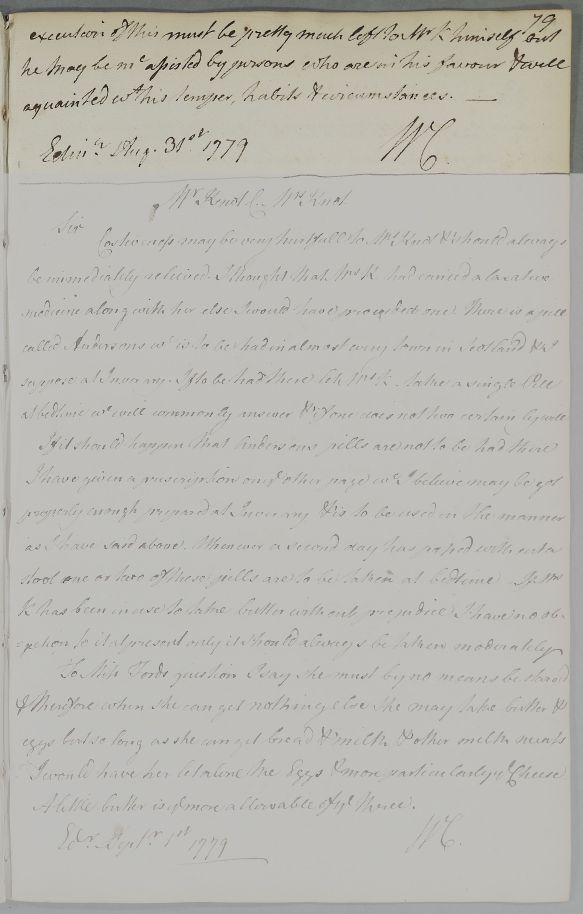 79
execution of this must be pretty much left to Mr K himself but
he may be mc assisted by persons who are in his favour & well
aquainted wt his temper, habits & circumstances. —
Edinr Aug. 31st 1779
WC.
Mr Knot C. Mrs Knot
Sir
Costiveness may be very hurtfull to Mrs Knot & should always
be immediately relieved. I thought that Mrs K had carried a laxative
medicine along with her else I would have prescribed one. There is a pill
called Andersons wc is to be had in almost every town in Scotland & I
suppose at Inverary. If to be had there let Mrs K. take a single Pill
at bedtime wc will commonly answer & if one does not two certainly will
If it should happen that Andersons pills are not to be had there
I have given a prescription on ye other page wc I believe may be got
properly enough prepared at Inverary & is to be used in the manner
as I have said above. Whenever a second day has passed without a
stool one or two of these pills are to be taken at bedtime. If Mrs
K has been in use to take butter without prejudice I have no ob-
=jection to it at present only it should always be taken moderately
To Miss Fords question I say she must by no means be starved
& therefore when she can get nothing else she may take butter &
eggs but so long as she can get bread & milk & other milk meats
I would have her let alone the Eggs & more particularly ye Cheese
A little butter is ye more allowable of ye three.
Edr. Septr. 1st 1779
WC.